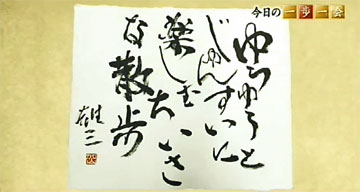 今日の一歩一会
ゆうゆうと
じゅんすいに
楽しむちいさ
な散歩
雄三